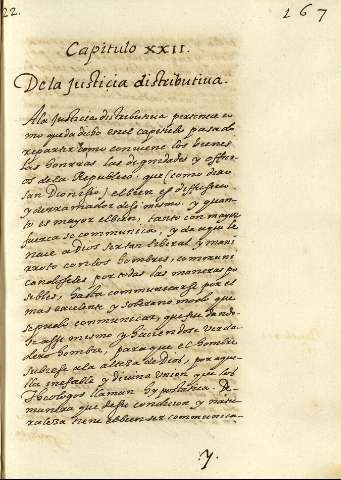 22.
167
Capitulo XXII.
De la Justicia distributiua.
A la justicia distributiua pertenece co
mo queda dicho en el capitulo passado
repartir como conuiene los bienes
las honrras las dignidades y offici
os de la Republica, que (como dixo
san Dionisio) el bien es diffusiuo
y derramador de si mismo y quan
to es mayor el bien, tanto con mayor
fuerza se communica, y de aqui le
nace a Dios ser tan liberal y mani
rroto con los hombres, communi
candoseles por todas las maneras po
sibles, hasta communicarse por el
mas excelente y soberano modo que
se pudo communicar, que fue dando
se assi mismo y haciendose verda
dero hombre, para que el hombre
subiesse a la alteza de Dios, por aque
lla inefable y diuina union, que los
Theologos llaman hypostatica. De
manera que desta condicion y natu
raleza tiene el bien ser communica-
y.